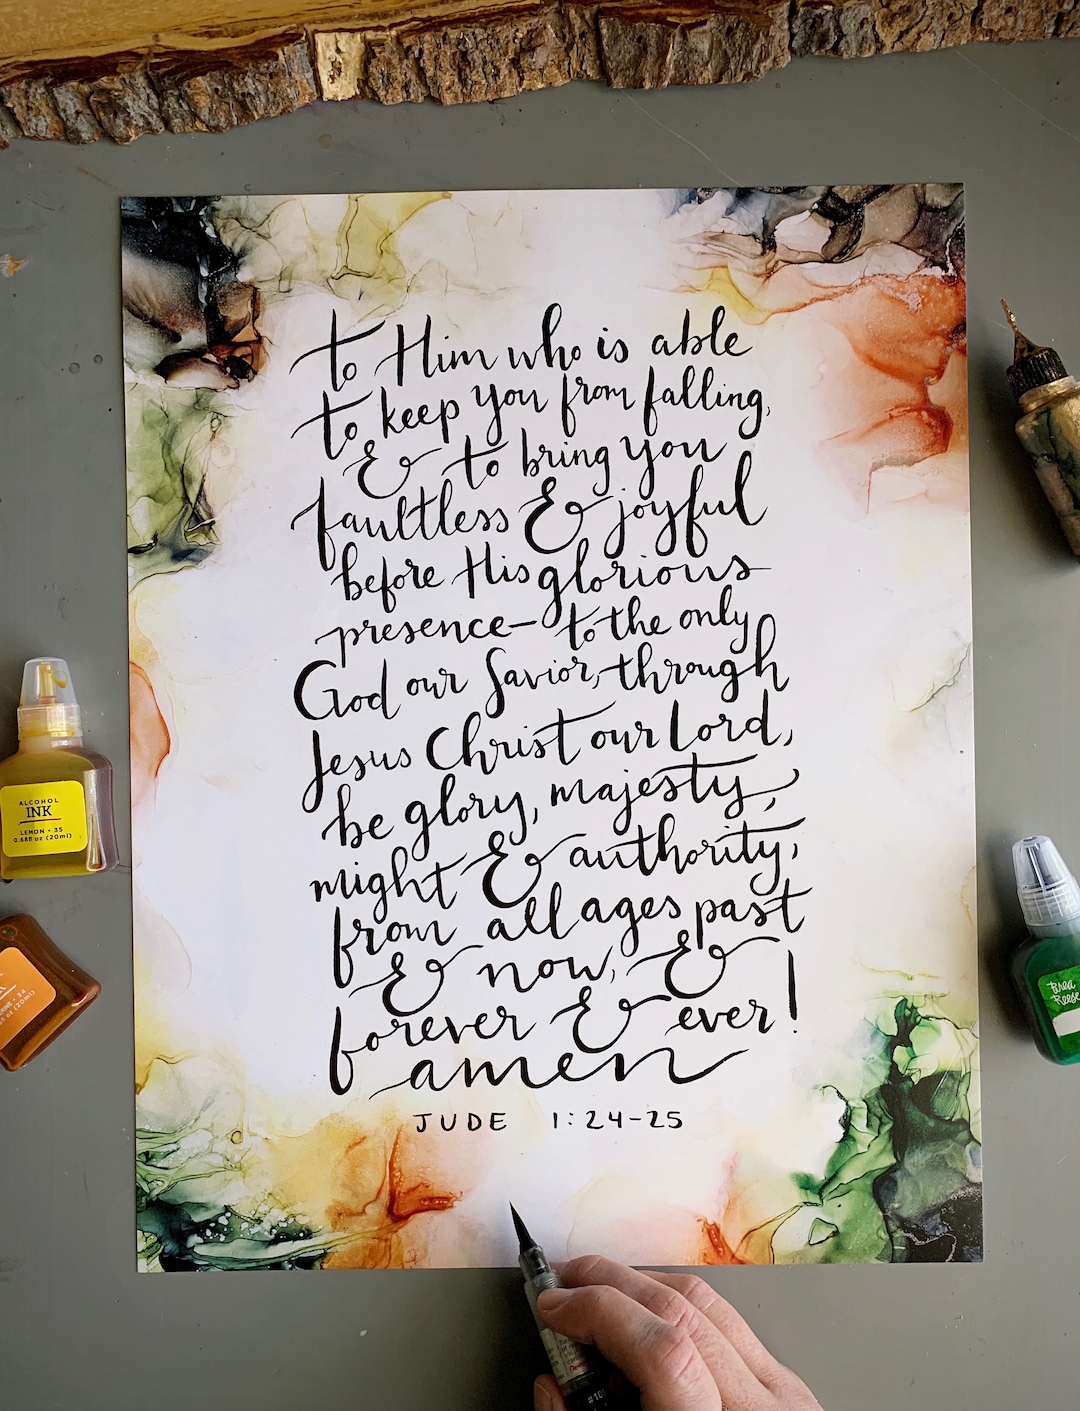 to Him who is able
to keep you from falling,
& to bring you
faultless & joyful
before His glorious
presence— to the only
God our Savior, through
Jesus Christ our Lord,
be glory, majesty,
might & authority,
from all ages past
& now, &
forever & ever!
amen
JUDE 1:24-25
ALCOHOL
INK
LEMON • 35
0.68fl oz (20ml)
Brea
Reese